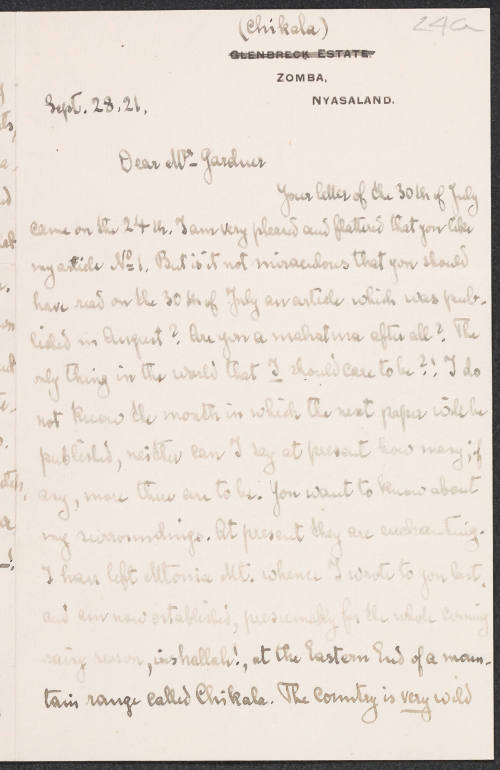 (Chikala)
24a
GLENBRECK ESTATE.
ZOMBA,
NYASALAND.
Sept. 28. 21.
Dear Mrs Gardner
Your letter of the 30th of July
came on the 24th. I am very pleased and flattered that you like
my article No 1. But is it not miraculous that you should
have read on the 30th of July an article which was pub-
lished in August? Are you a mahatma after all? The
only thing in the world that I should care to be?! I do
not know the month in which the next paper will be
published, neither can I say at present how many, if
any, more there are to be. You want to know about
my surroundings. At present they are enchanting.
I have left Mtonia Mt. whence I wrote to you last,
and am now established, presumably for the whole coming
rainy season, inshallah!, at the Eastern End of a moun-
tain range called Chikala. The country is very wild